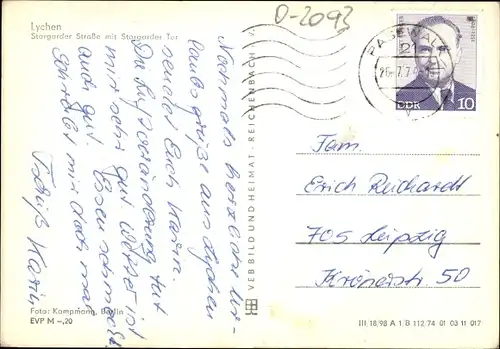 Lychen
Stargarder Straße mit Stargarder Tor
O-2093
Nochmals herzliche Ur-
laubsgrüße aus Lychen
sendet Euch Karin.
Die Luftveränderung tut
mir sehr gut. Wetter ist
auch gut. Essen schmeckt.
Schreibt mir doch mal
Tschüß Karin
Foto: Kampmann, Berlin
EVP M –,20
VEB BILD UND HEIMAT · REICHENBACH i. V.
PASEWALK
21
26.7.74
DDR 10
Fam.
Erich Reichardt
705 Leipzig
Krönerstr. 50
III 18/98 A 1 B 112 74 01 03 11 017